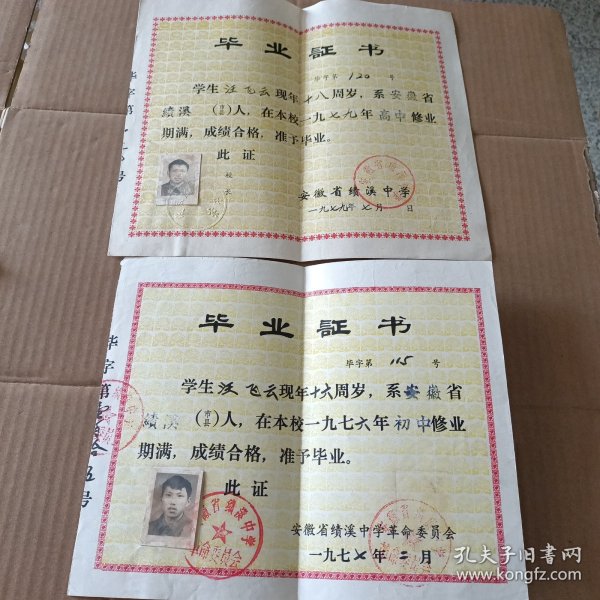 毕业証书
毕字第 120 号
学生汪飞云现年十八周岁，系安徽省
绩溪（市县）人，在本校一九七九年高中修业
期满，成绩合格，准予毕业。
此证
校长
安徽省绩溪中学
一九七九年七月 日
毕业証书
毕字第 115 号
学生汪飞云现年十六周岁，系安徽省
绩溪（市县）人，在本校一九七六年初中修业
期满，成绩合格，准予毕业。
此证
安徽省绩溪中学革命委员会
一九七七年二月
安徽省绩溪中学
革命委员会
孔夫子旧书网
www.kongfz.com